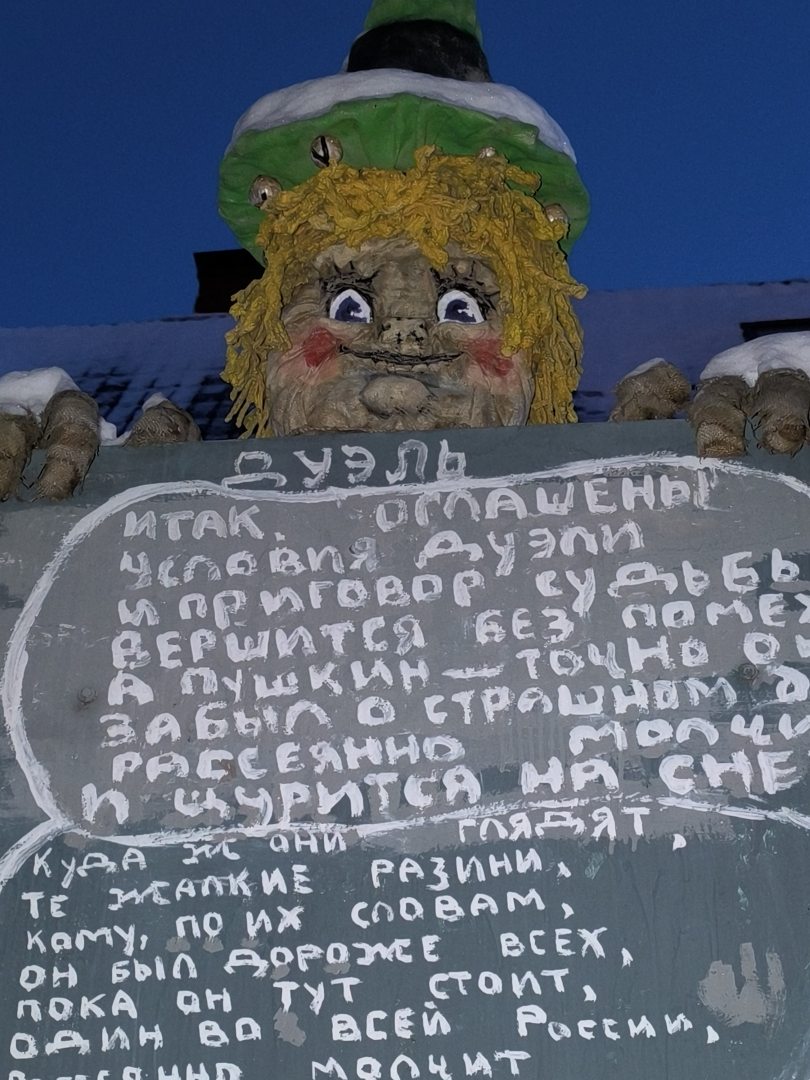 ДУЭЛЬ
ИТАК, ОГЛАШЕНЫ
УСЛОВИЯ ДУЭЛИ
И ПРИГОВОР СУДЬБЫ
ВЕРШИТСЯ БЕЗ
А ПУШКИН — ТОЧНО
ЗАБЫЛ О СТРАШНОМ
РАССЕЯННО
И ЩУРИТСЯ НА СНЕ
КУДА Ж ОНИ ГЛЯДЯТ,
ТЕ ЖАЛКИЕ РАЗИНИ,
КАМУ, ПО ИХ СЛОВАМ,
ОН БЫЛ ДОРОЖЕ ВСЕХ,
ПОКА ОН ТУТ СТОИТ,
ОДИН ВО ВСЕЙ РОССИИ,
МОЛЧИТ